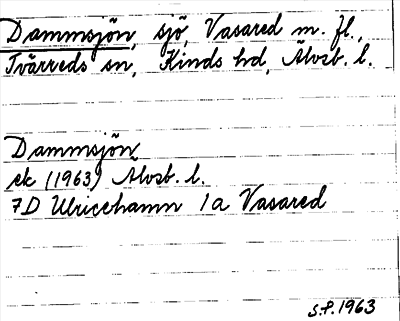 Dammsjön, sjö, Vasared m. fl.,
Tvärreds sn, Kinds hd, Älvsb. l.
Dammsjön
ek (1963) Älvsb. l.
7D Ulricehamn 1a Vasared
S.P. 1963